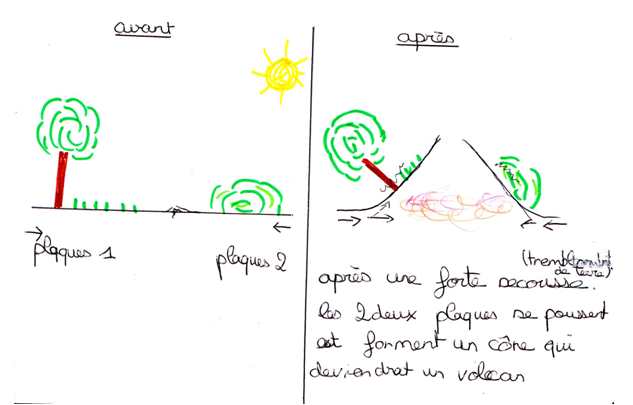 avant
plaques 1
plaques 2
après
(tremblement
de terre).
après une forte secousse.
les 2 deux plaques se poussent
et forment un cône qui
deviendrat un volcan